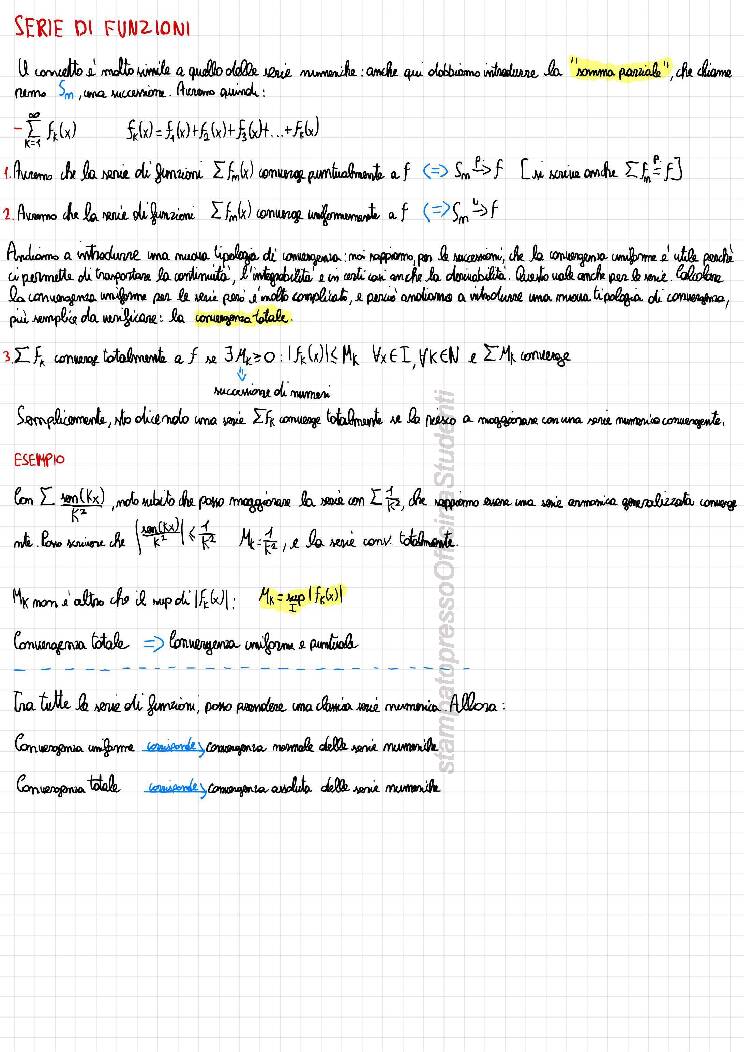 SERIE DI FUNZIONI
Il concetto è molto simile a quello delle serie numeriche: anche qui dobbiamo introdurre la "somma parziale", che chiame
remo Sₘ, una successione. Avremo quindi:
- ∑_{K=1}^{∞} fₖ(x)    fₖ(x)=f₁(x)+f₂(x)+f₃(x)+...+fₖ(x)
1. Avremo che la serie di funzioni ∑fₘ(x) converge puntualmente a f (=>) Sₘ -p-> f [si scrive anche ∑fₘ =p f]
2. Avremo che la serie di funzioni ∑fₘ(x) converge uniformemente a f (=>) Sₘ -u-> f
Andiamo a introdurre una nuova tipologia di convergenza: noi sappiamo, per le successioni, che la convergenza uniforme è utile perché
ci permette di trasportare la continuità, l'integrabilità e in certi casi anche la derivabilità. Questo vale anche per le serie. Calcolare
la convergenza uniforme per le serie però è molto complicato, e perciò andiamo a introdurre una nuova tipologia di convergenza,
più semplice da verificare: la convergenza totale.
3. ∑fₖ converge totalmente a f se ∃Mₖ≥0 : |fₖ(x)|≤Mₖ ∀x∈I, ∀K∈N e ∑Mₖ converge
successione di numeri
Semplicemente, sto dicendo una serie ∑fₖ converge totalmente se la riesco a maggiorare con una serie numerica convergente.
ESEMPIO
Con ∑ sen(Kx)/K², noto subito che posso maggiorare la serie con ∑ 1/K², che sappiamo essere una serie armonica generalizzata converge
nte. Posso scrivere che |sen(Kx)/K²| ≤ 1/K²  Mₖ=1/K², e la serie conv. totalmente.
Mₖ non è altro che il sup di |fₖ(x)|: Mₖ = sup_I |fₖ(x)|
Convergenza totale => Convergenza uniforme e puntuale
Tra tutte le serie di funzioni, posso prendere una classica serie numerica. Allora:
Convergenza uniforme corrisponde> convergenza normale delle serie numeriche
Convergenza totale corrisponde> convergenza assoluta delle serie numeriche
stampatopressoOfficinaStudenti